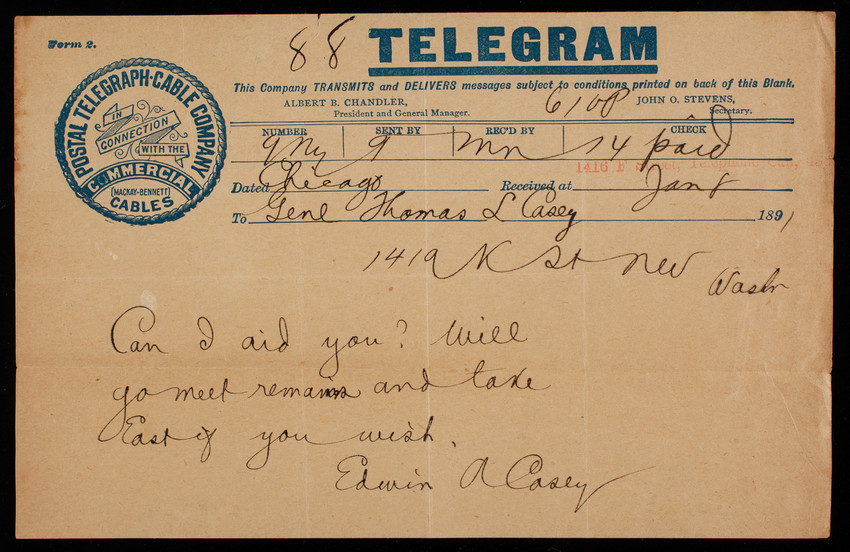 Form 2.
88
TELEGRAM
POSTAL TELEGRAPH-CABLE COMPANY
IN
CONNECTION
WITH THE
COMMERCIAL
(MACKAY-BENNETT)
CABLES
This Company TRANSMITS and DELIVERS messages subject to conditions printed on back of this Blank.
ALBERT B. CHANDLER, JOHN O. STEVENS,
President and General Manager. Secretary.
NUMBER SENT BY REC'D BY CHECK
9 Ny 9 Mn 14 paid
1416 F Street
Dated Chicago Received at Jan 8
To Genl Thomas L Casey 1891
1419 K St NW
Washn
Can I aid you? Will
go meet remains and take
East if you wish.
Edwin A Casey